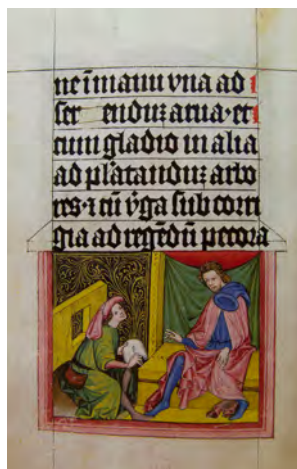 ne ī manu vna ad
ser enduz arua · et
cum gladio in alia
ad plātanduz arbo
res · ⁊ cū v̇ga sub corri
gia ad regēdū pecora